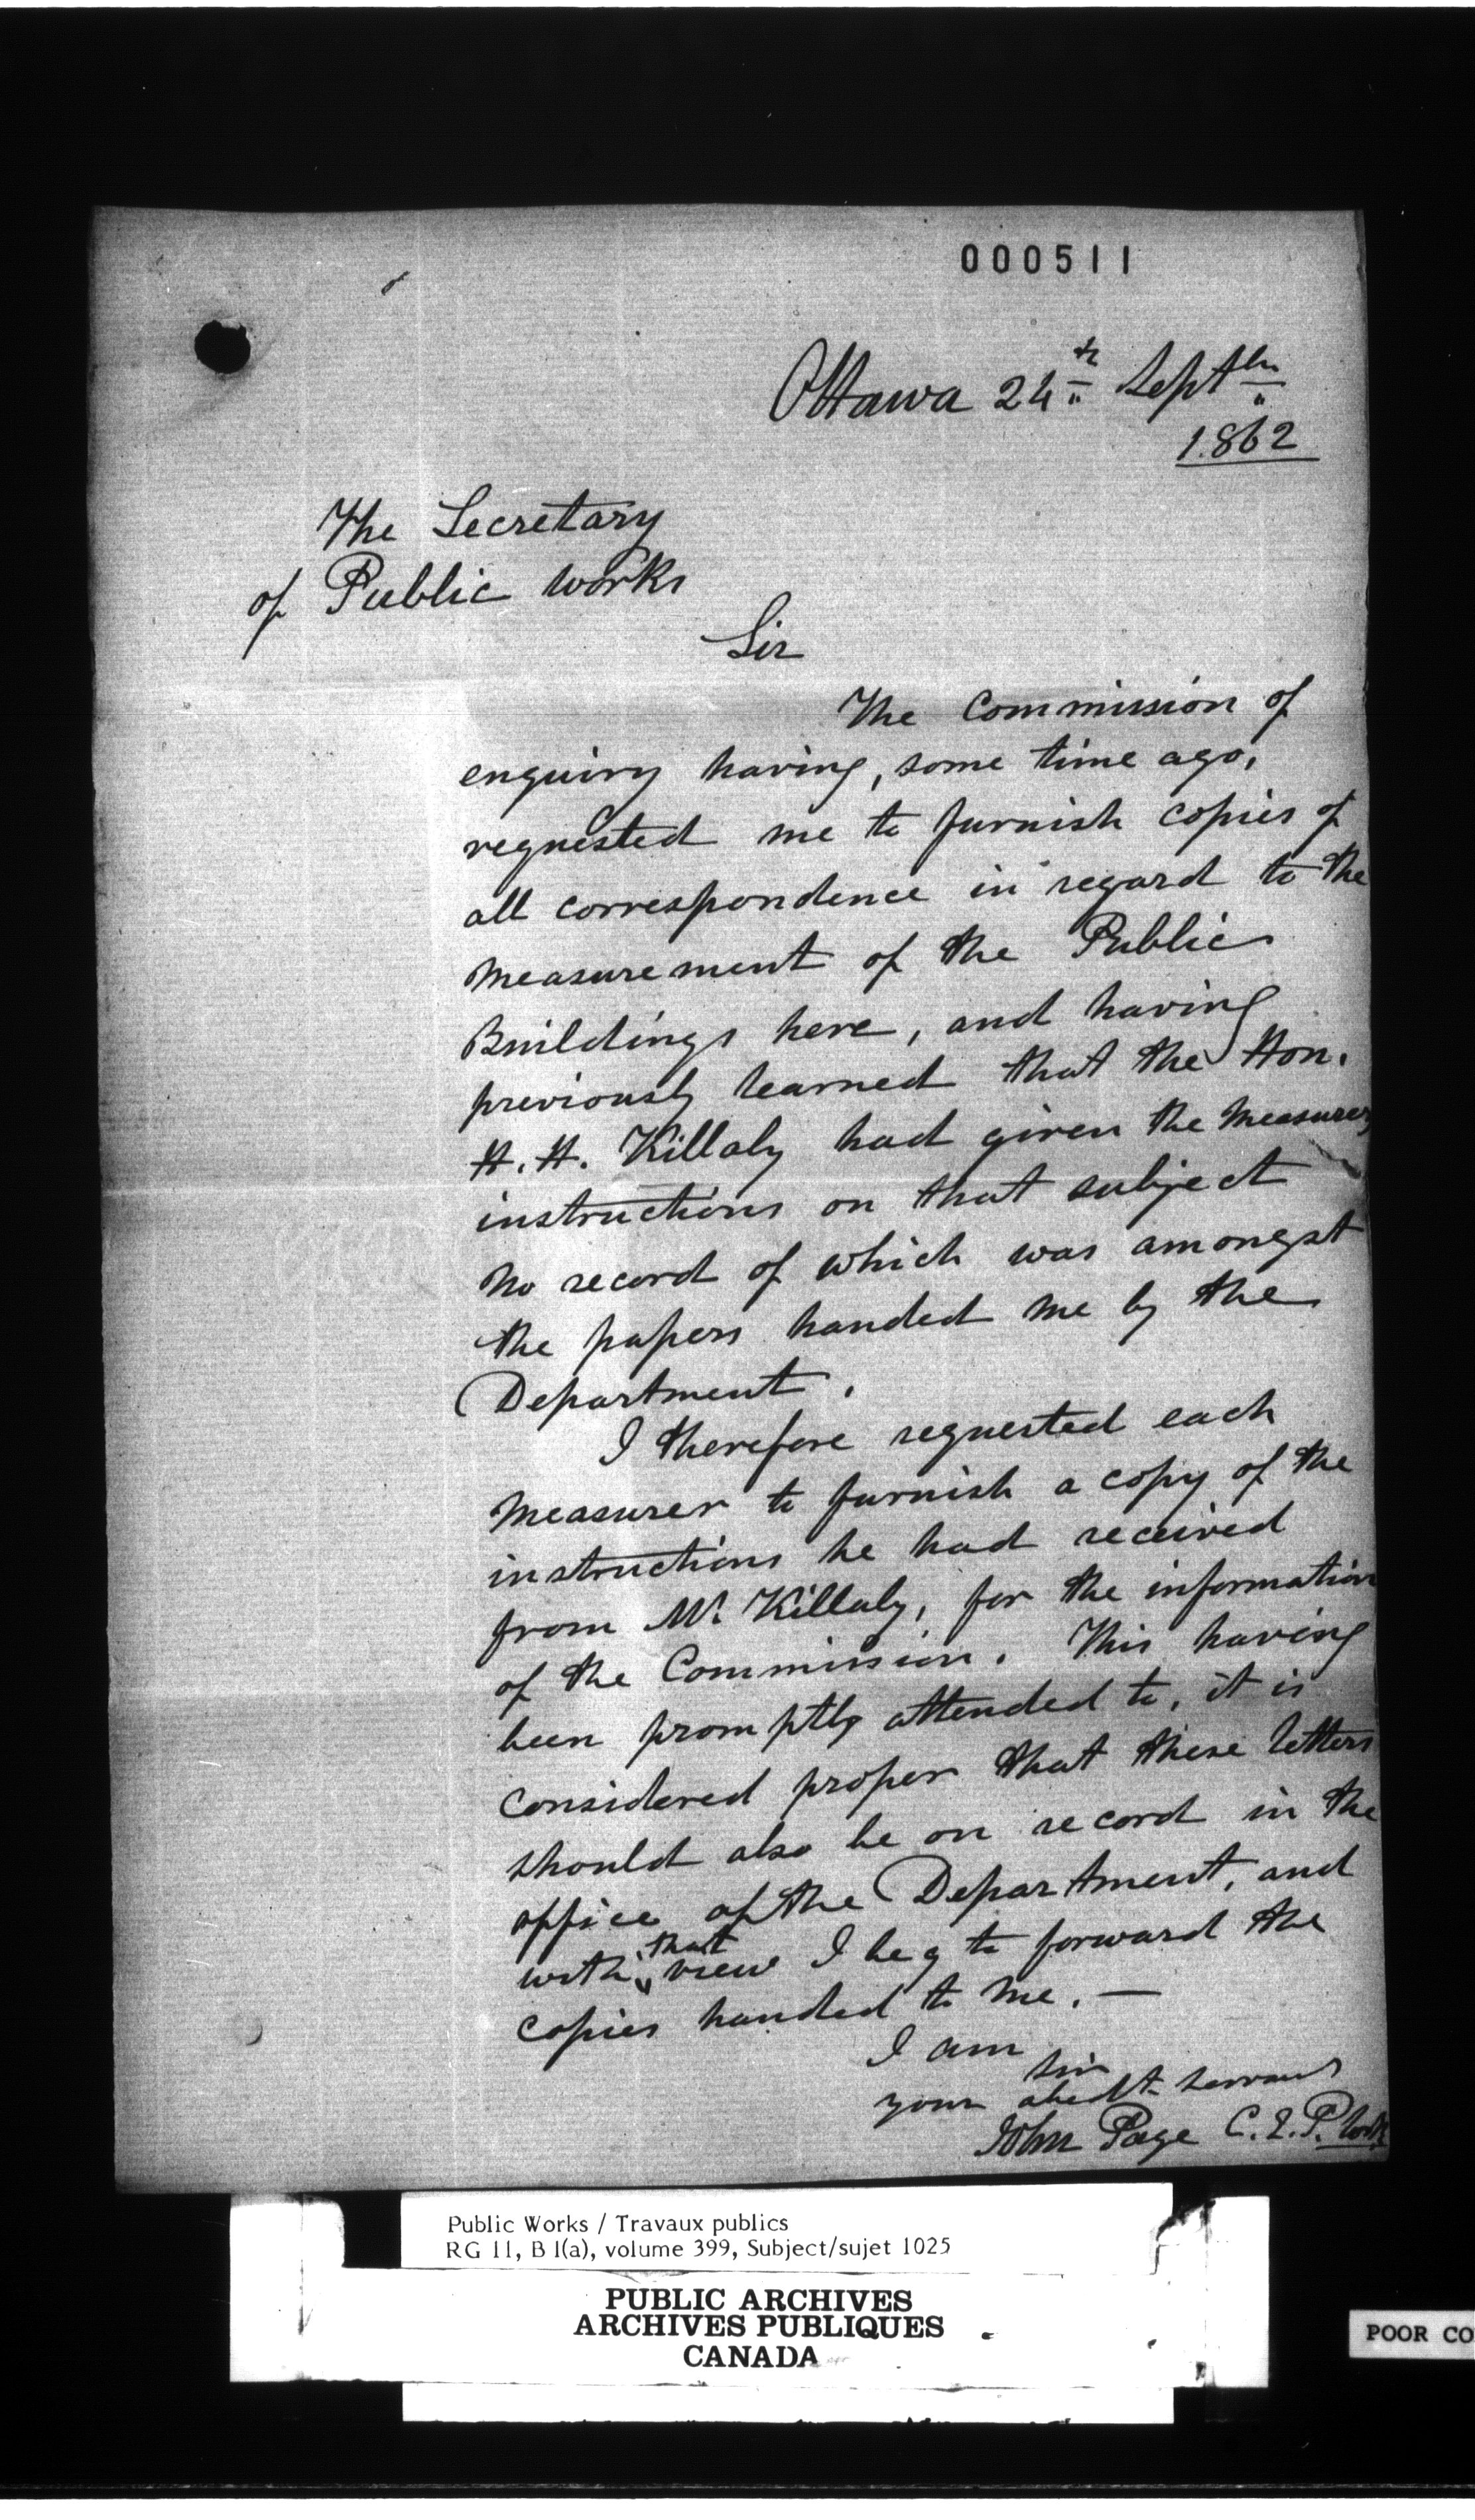 000511
Ottawa 24th Septbr
1862
The Secretary
of Public works
Sir
The Commission of
enquiry having, some time ago,
requested me to furnish copies of
all correspondence in regard to the
measurement of the Public
Buildings here, and having
previously learned that the Hon.
H. H. Killaly had given the measurers
instructions on that subject
no record of which was amongst
the papers handed me by the
Department.
I therefore requested each
measurer to furnish a copy of the
instructions he had received
from Mr. Killaly, for the information
of the Commission. This having
been promptly attended to, it is
considered proper that these letters
should also be on record in the
office of the Department, and
with that view I beg to forward the
copies handed to me. —
I am
Sir
your obedt servant
John Page C.E.P. Works
Public Works / Travaux publics
RG 11, B 1(a), volume 399, Subject/sujet 1025
PUBLIC ARCHIVES
ARCHIVES PUBLIQUES
CANADA
POOR CO